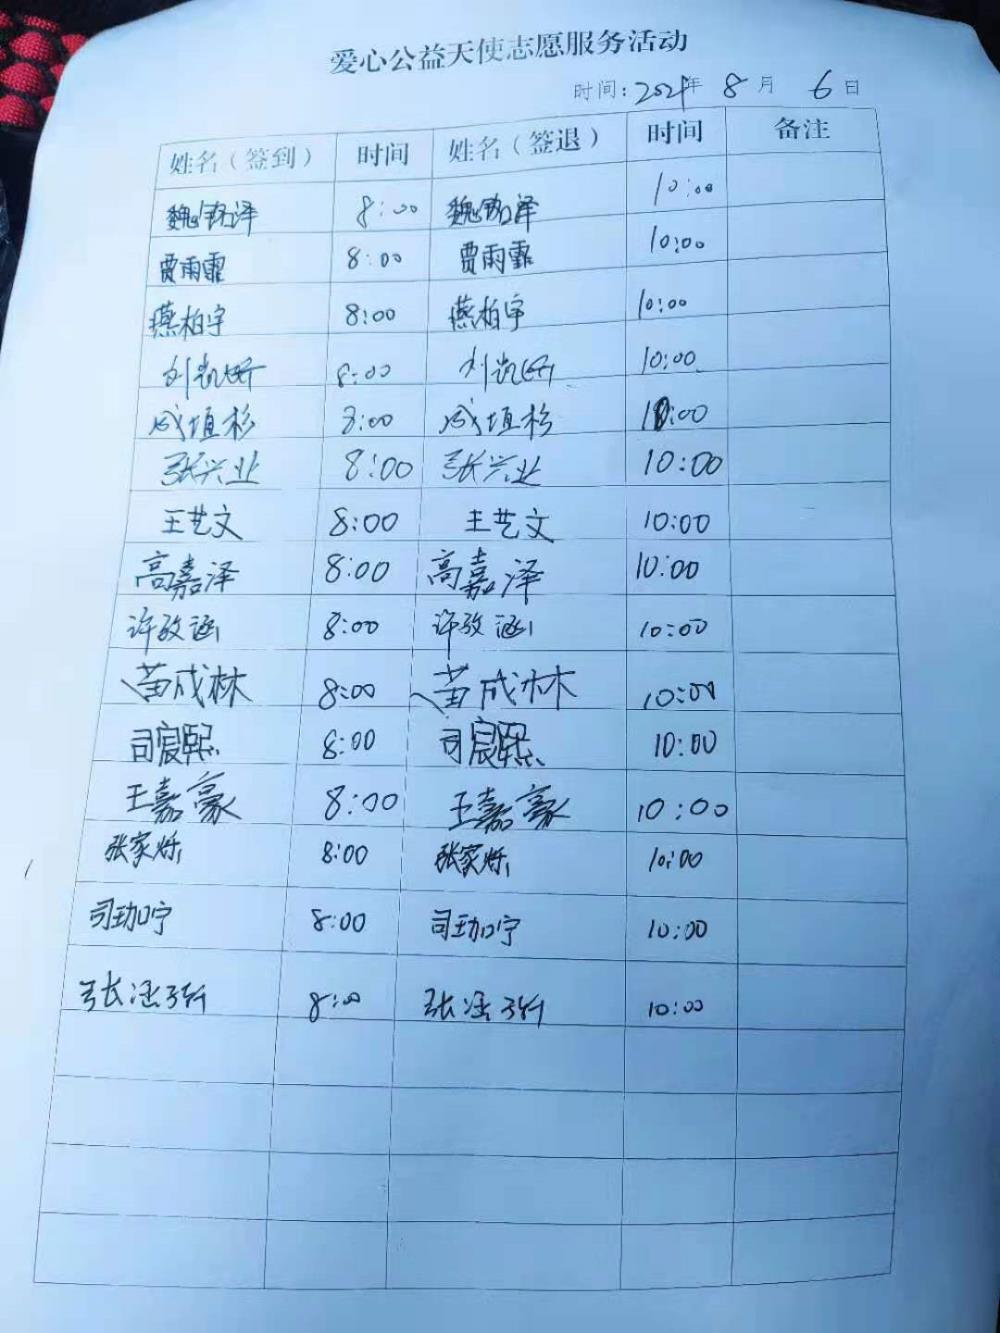 爱心公益天使志愿服务活动
时间: 2021年 8月 6日
姓名(签到) 时间 姓名(签退) 时间 备注
魏铭泽 8:00 魏铭泽 10:00
贾雨霏 8:00 贾雨霏 10:00
燕柏宇 8:00 燕柏宇 10:00
刘凯 8:00 刘凯 10:00
成垣杉 8:00 成垣杉 10:00
张兴业 8:00 张兴业 10:00
王艺文 8:00 王艺文 10:00
高嘉泽 8:00 高嘉泽 10:00
许孜涵 8:00 许孜涵 10:00
苗成林 8:00 苗成林 10:00
司宸熙 8:00 司宸熙 10:00
王嘉豪 8:00 王嘉豪 10:00
张家烁 8:00 张家烁 10:00
司珈宁 8:00 司珈宁 10:00
张涵 8:00 张涵 10:00